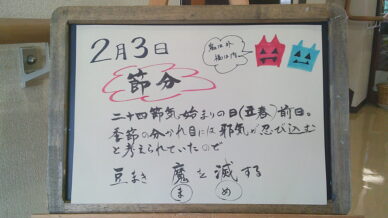 2月3日
鬼は外
福は内
節分
二十四節気始まりの日(立春)前日。
季節の分かれ目には邪気が忍び込む
と考えられていたので
豆まき 魔を滅する
ま め